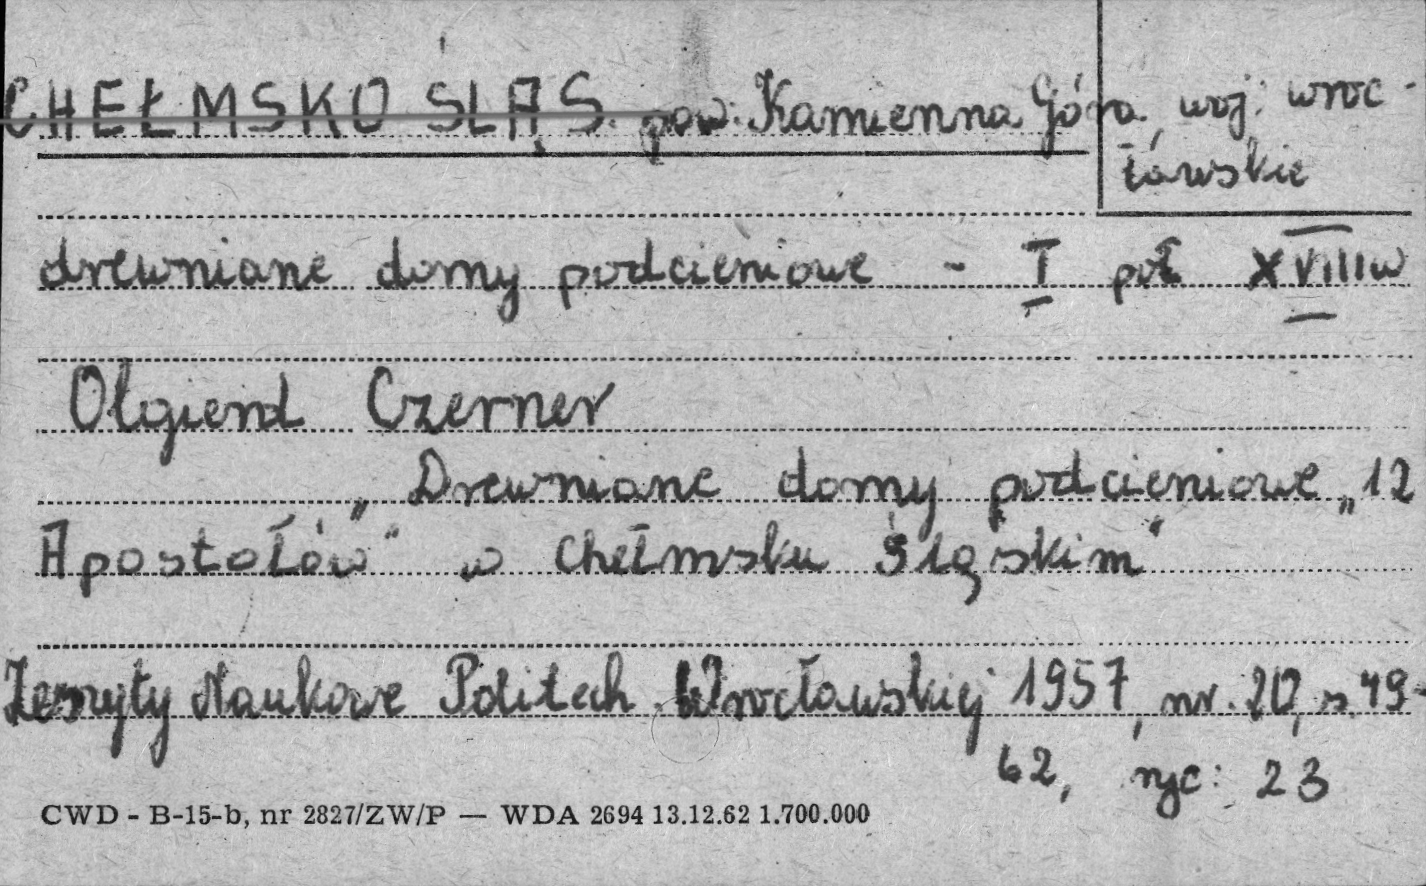 CHEŁMSKO ŚLĄS. pow. Kamienna Góra, woj: wroc-
ławskie
drewniane domy podcieniowe - I poł XVIII w
Olgierd Czerner
„Drewniane domy podcieniowe „12
Apostołów" w Chełmsku Śląskim"
Zeszyty Naukowe Politech. Wrocławskiej 1957, nr. 20, s. 49-
62, ryc: 23
CWD - B-15-b, nr 2827/ZW/P — WDA 2694 13.12.62 1.700.000